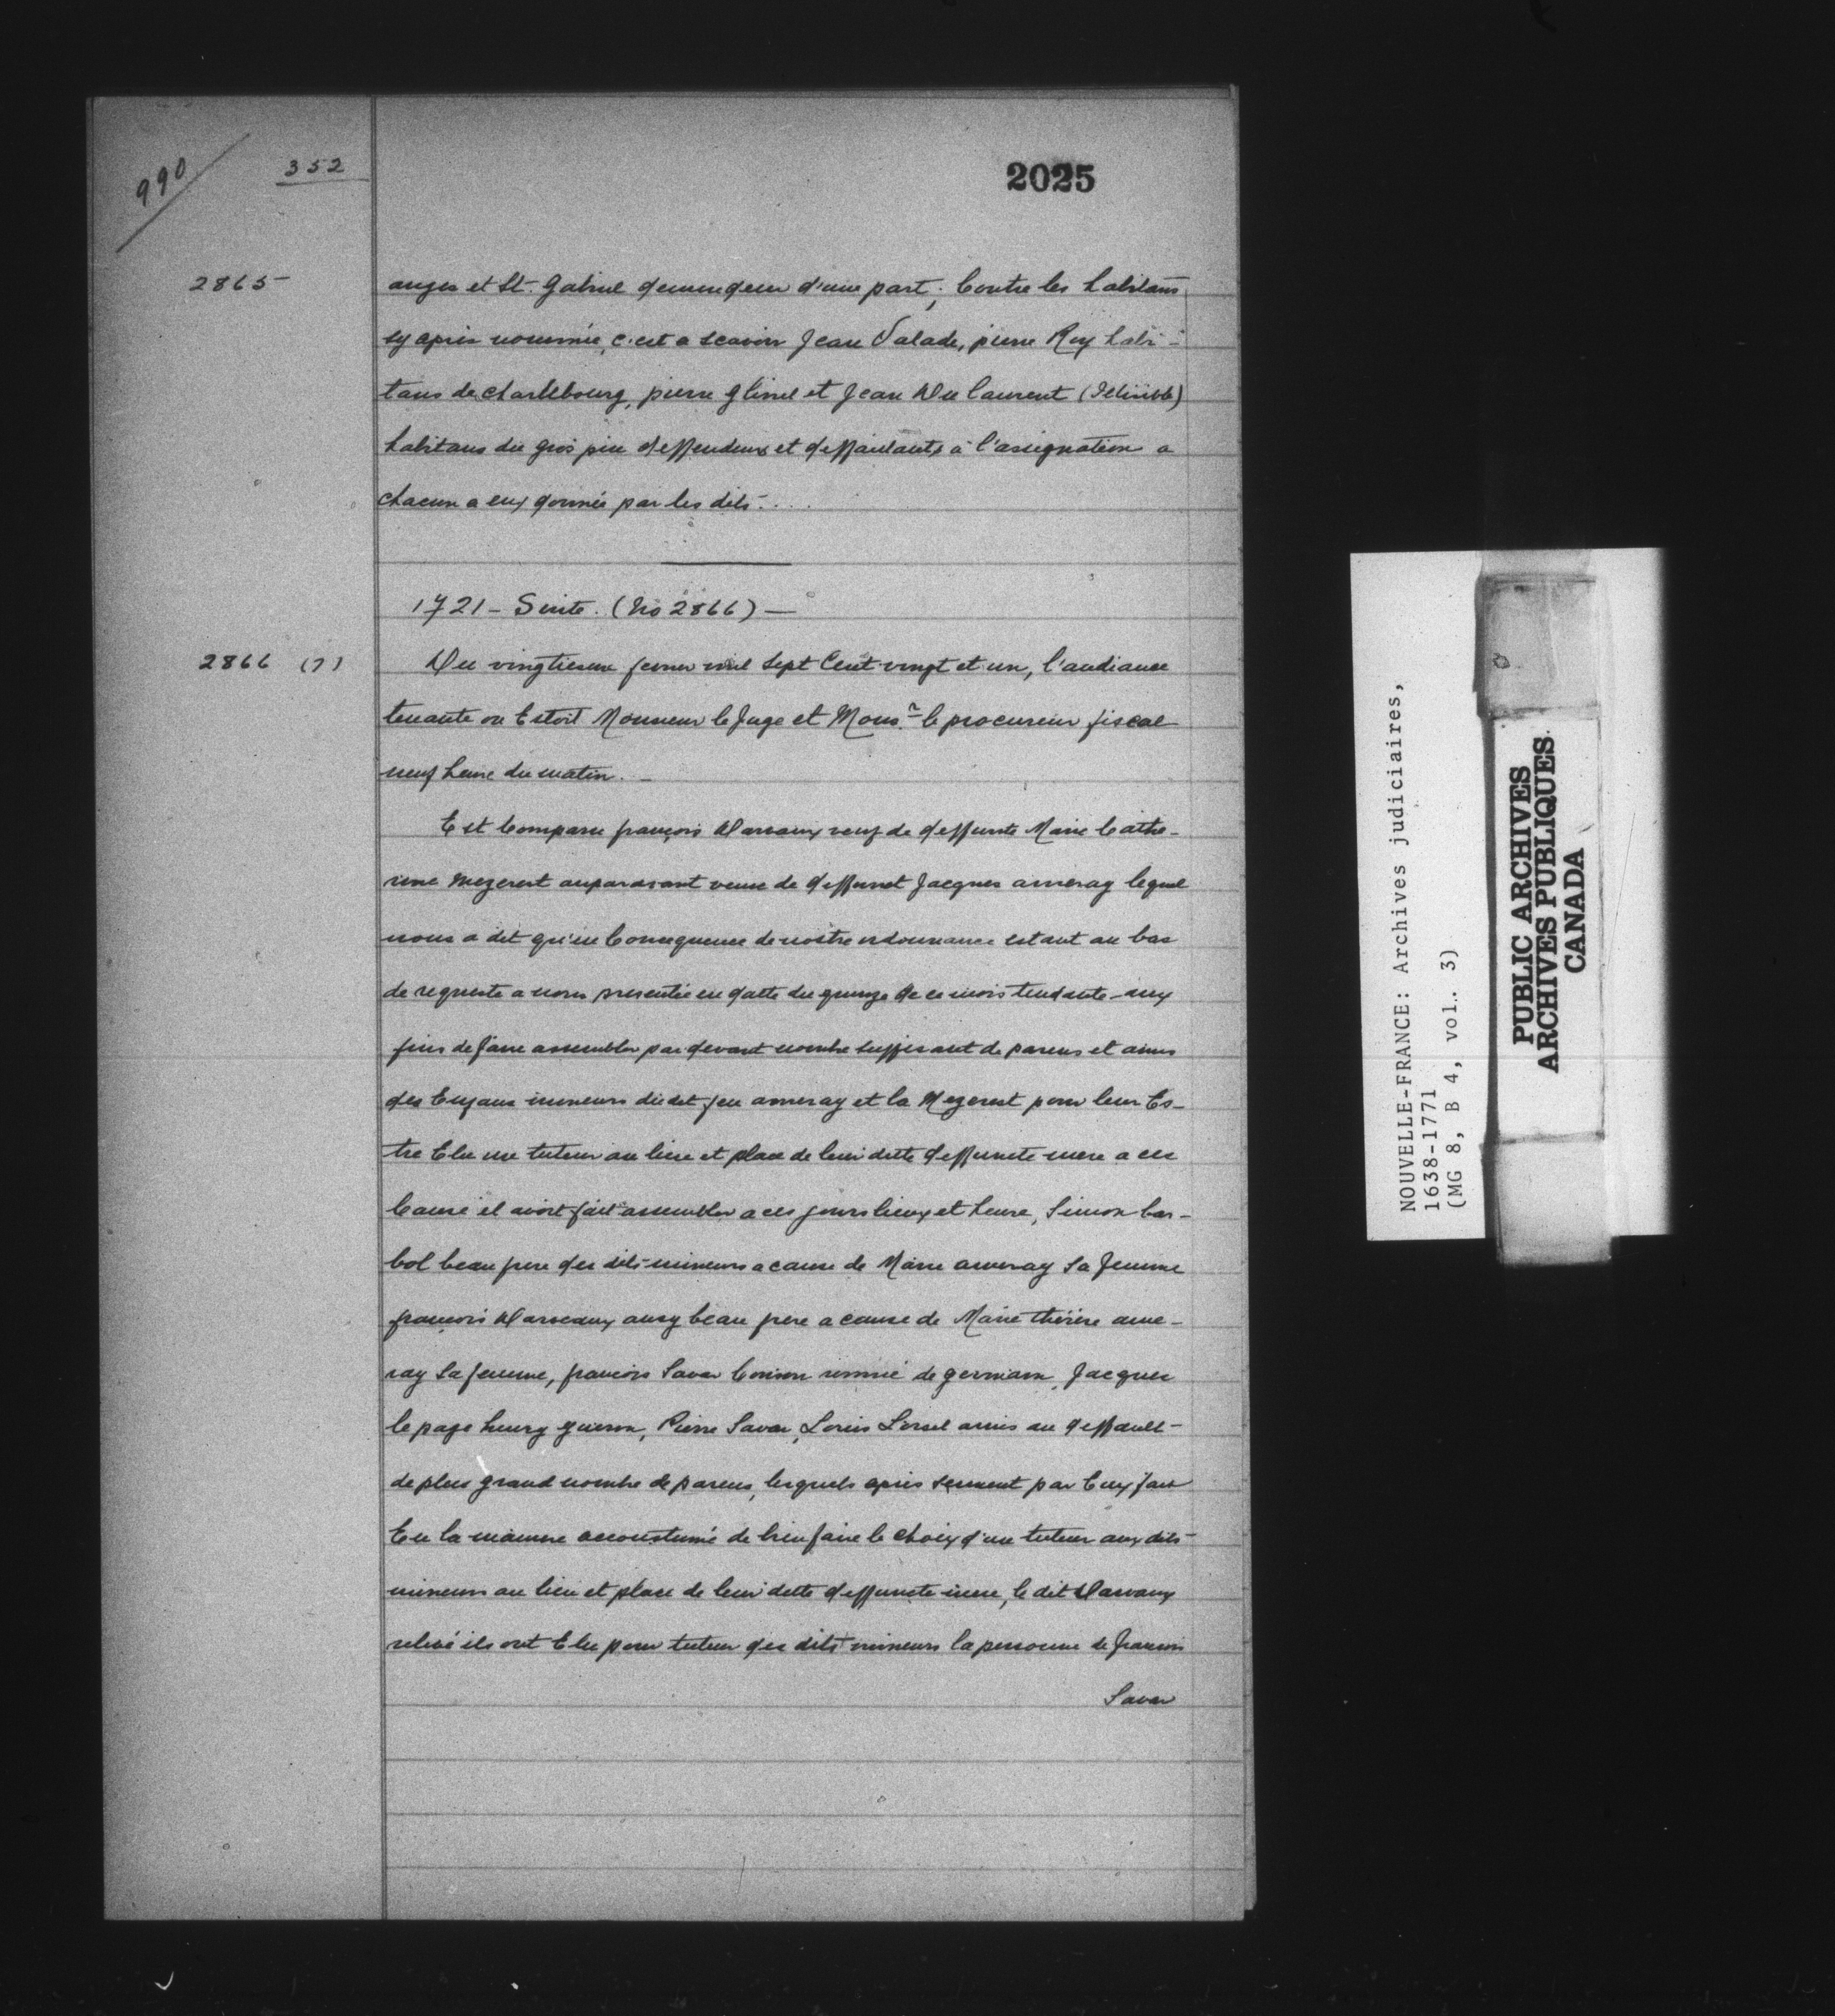 990
352
2025
2865
anges et St. Gabriel demmendeur d'une part; Contre les habitans
cy apres nommés, c'est a scavoir Jean Valade, pierre Roy habi-
tans de charlebourg, pierre glinel et Jean Du laurent (Illisible)
habitans du gros pin deffendeurs et deffaillants à l'assignation a
chacun a eux donnée par les dits....
1721 - Suite. (No 2866) -
2866 (7)
Du vingtiesme fevrier mil Sept Cent vingt et un, l'audiance
tenante ou Estoit Monsieur le Juge et Monsr le procureur fiscal
neuf heure du matin. -
Est Comparu françois Darvaux veuf de deffunte Marie Cathe-
rine Mezerest auparavant veuve de deffunct Jacques ameray lequel
nous a dit qu'en Consequence de nostre ordonnance estant au bas
de requeste a nous presentée en datte du quinze de ce mois tendante aux
fins de faire assembler par devant nombre suffisant de parens et amis
des Enfans mineurs dudit feu ameray et la Mezerest pour leur Es-
tre Elu un tuteur au lieu et place de leur ditte deffuncte mere a ces
Cause il avoit fait assembler a ces jours lieux et heure, Simon bar-
bol beau frere des dits mineurs a cause de Marie ameray Sa femme
françois Darveaux ausy beau frere a cause de Marie thérèse ame-
ray Sa femme, francois Savar Cousin remué de germain, Jacques
le page henry guion, Pierre Savar, Louis Lorsel amis au deffault
de plus grand nombre de parens, lesquels après serment par Eux fait
En la maniere accoustumé de bien faire le choix d'un tuteur aux dits
mineurs au lieu et place de leur ditte deffuncte mere, le dit Darvaux
retiré ils ont Elu pour tuteur des dits mineurs la personne de francois
Savar
NOUVELLE-FRANCE: Archives judiciaires,
1638-1771
(MG 8, B 4, vol. 3)
PUBLIC ARCHIVES
ARCHIVES PUBLIQUES
CANADA